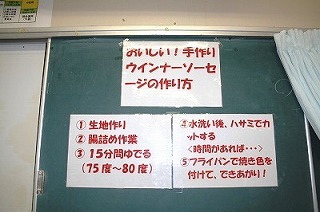 おいしい！手作り
ウインナーソーセ
ージの作り方
① 生地作り
② 腸詰め作業
③ １５分間ゆでる
（７５度～８０度）
④ 水洗い後、ハサミでカ
ットする
＜時間があれば・・・＞
⑤ フライパンで焼き色を
付けて、できあがり！